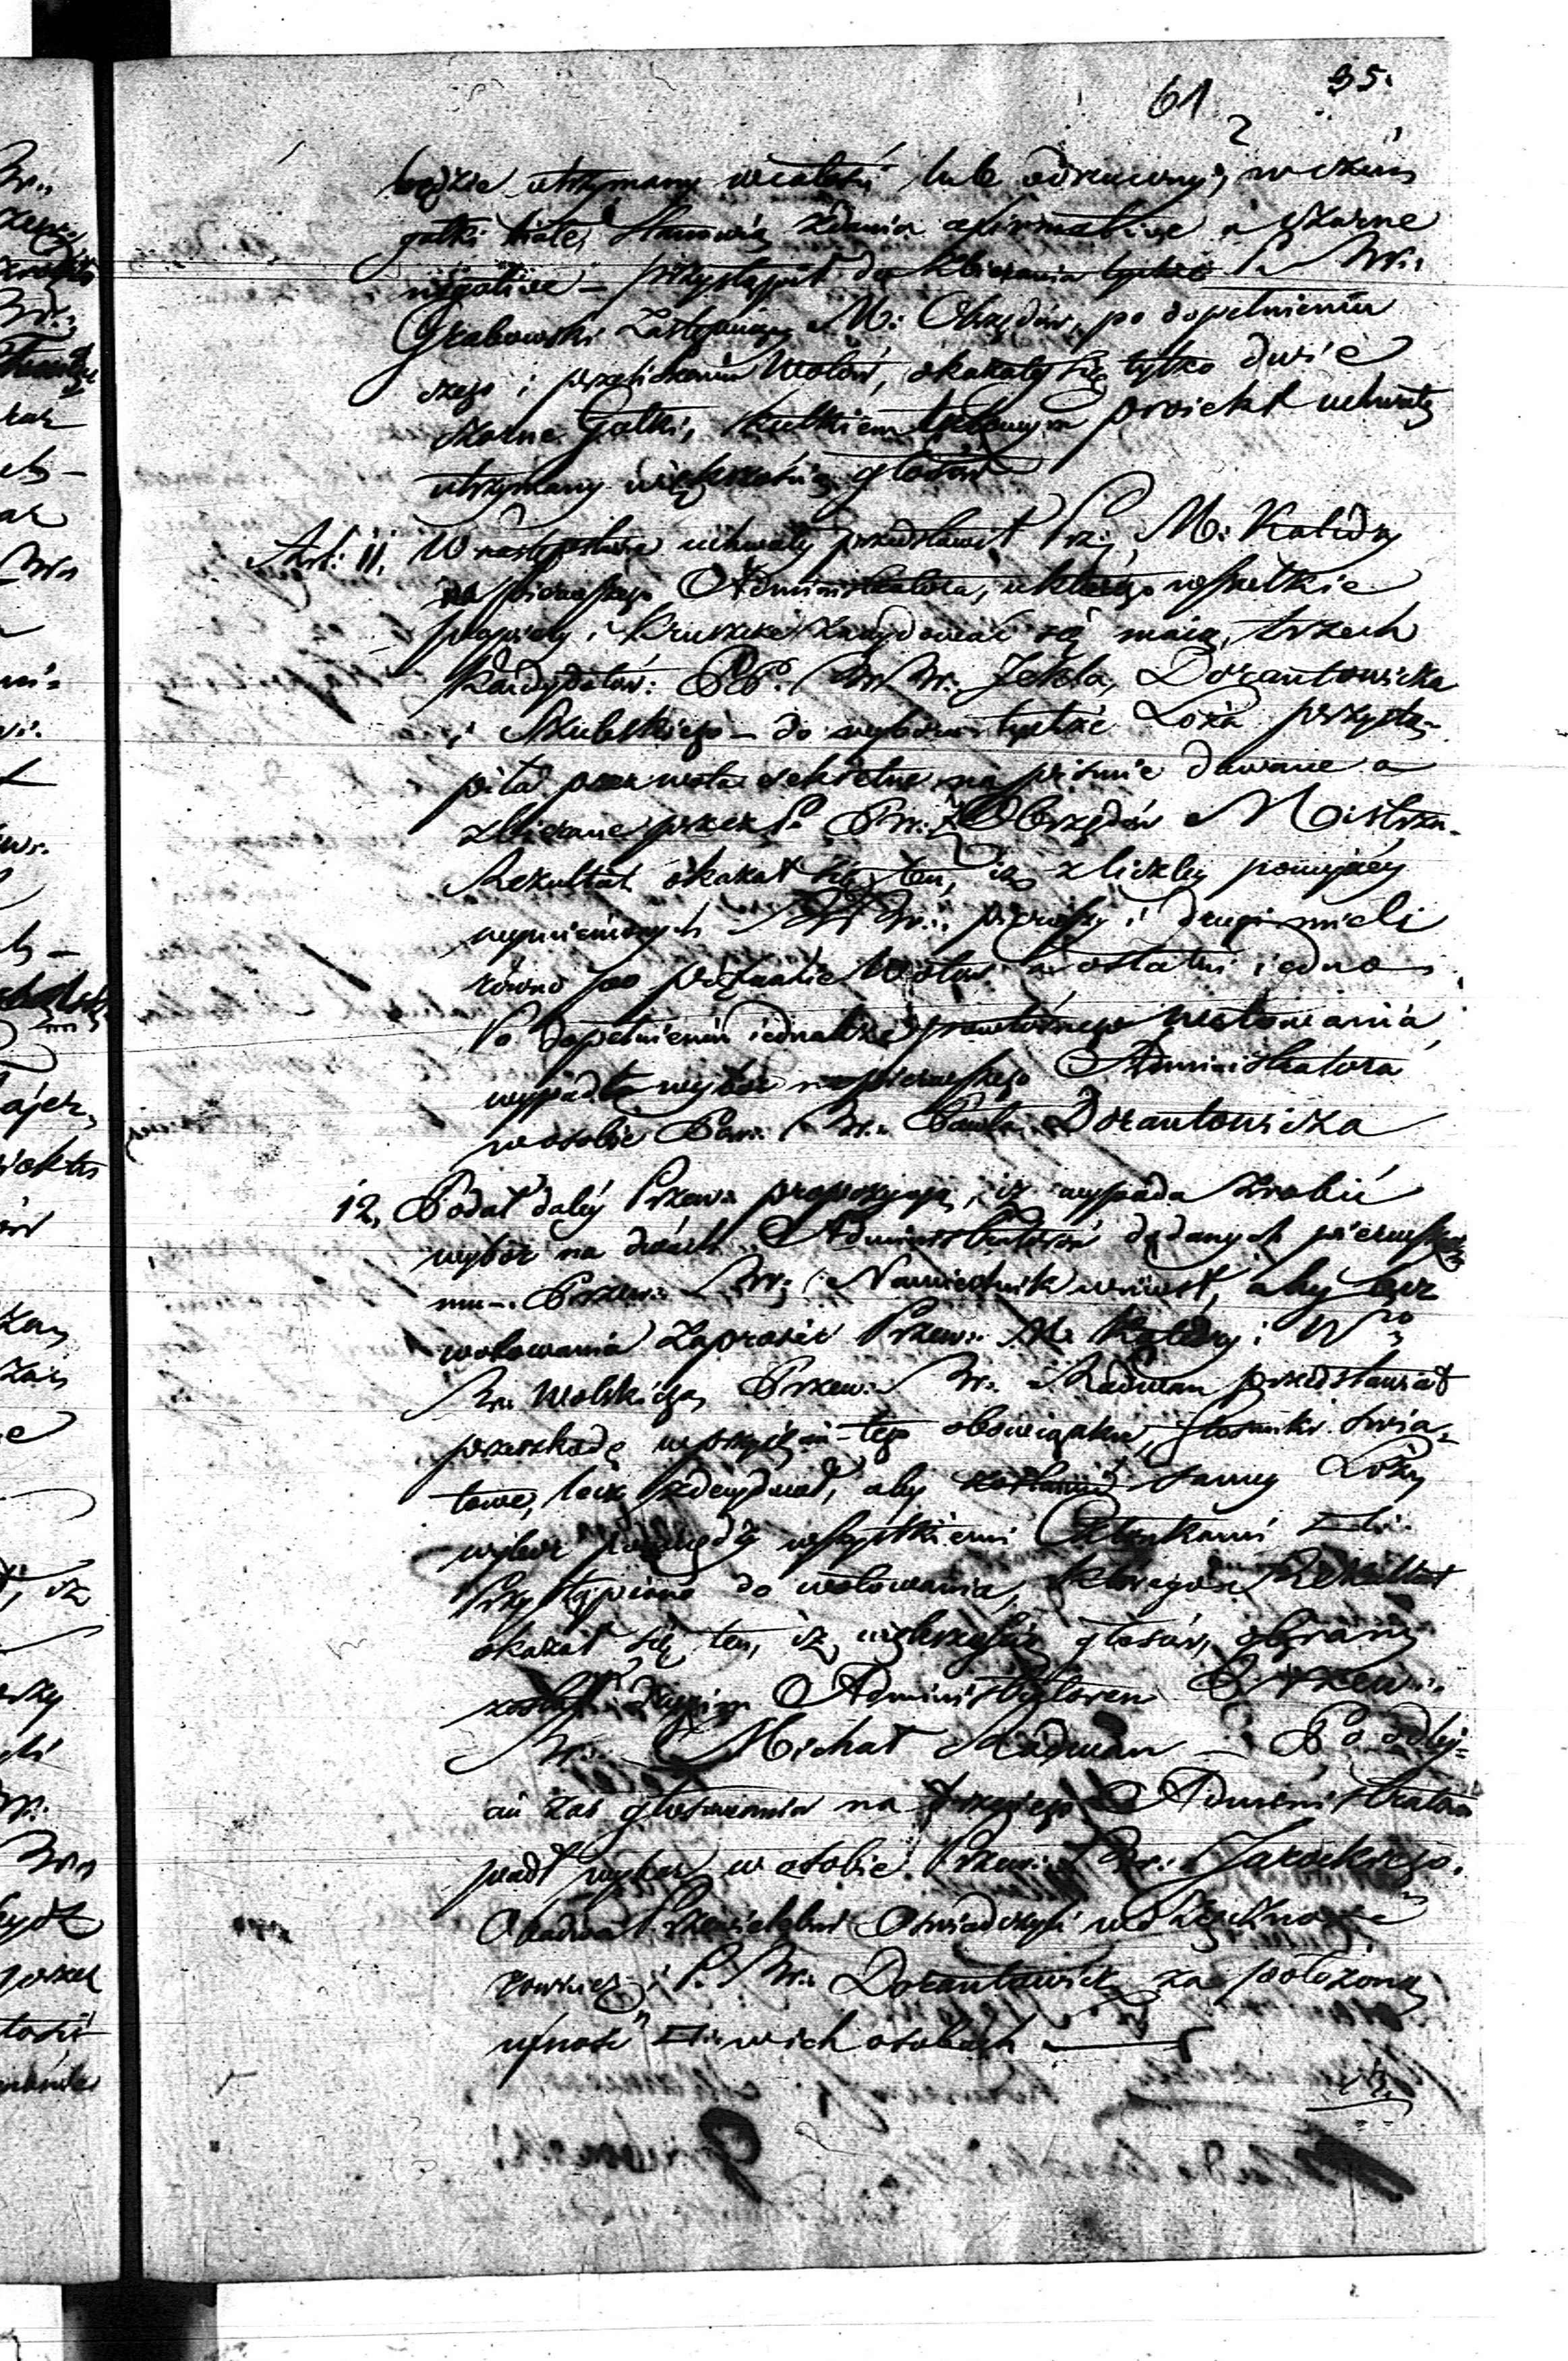 61 35.
będzie utrzymany w całości lub odrzucony, w czém
gałki białe, stanowią zdania afirmative a czarne
negative — przystąpił do zbierania tychże P. Br.:
Grabowski Zastępuiący M: Obrzędów, po dopełnieniu
czego i przeliczeniu Wotów, okazały się tylko dwie
czarne Gałki, skutkiem proiekt uchwały
utrzymany większością głosów
Art: 11. W następstwie uchwały przedstawił Prz: M: Katedry
na pierwszego Administratora, u którego wszelkie
papiery i kruszce znaydować się maią, trzech
Kandydatów: PP. Br Br: Dozantowicza
i Skulskiego — do wyboru tychże Loża przystą-
piła przez wota sekretne na piśmie dawane a
zbierane przez P. Br: Obrzędów Mistrza.
Rezultat okazał się ten, iż z liczby pomiędzy
wymienionych Br Br:, pierwszy i drugi mieli
równo po Wotów a ostatni iedno
Po dopełnieniu iednakże powtórnego Wotowania
wypadł wybor na pierwszego Administratora
w osobie Br: Pawła Dozantowicza
12. Podał daléy Przew: propozycyą, iż wypada zrobić
wybór na dwóch Administratorów dodanych pierwsze-
mu —. Przew: Br: Namiestnik wniosł, aby bez
wotowania zaprosić Przew: M: Katedry i
Br: Wolskiego, Przew: Br: Radwan przedstawiał
przeszkodę w przyięciu tego obowiązku, stosunki świa-
towe, lecz zdecydował, aby samey Loży
wybor pomiędzy wszystkiemi Członkami
Przystąpiono do wotowania, którego Rezultat
okazał się ten, iż większością głosów, obrany
został drugim Administratorem Przew:
Br: Michał Radwan — Po odby-
ciu zaś głosowania na trzeciego Administratora
padł wybor w osobie Przew: Br: Jarockiego.
Obadwa Przewielebni Oświadczyli wdzięczność
rownież i P. Br: Dozantowicz za położoną
ufność w ich osobach